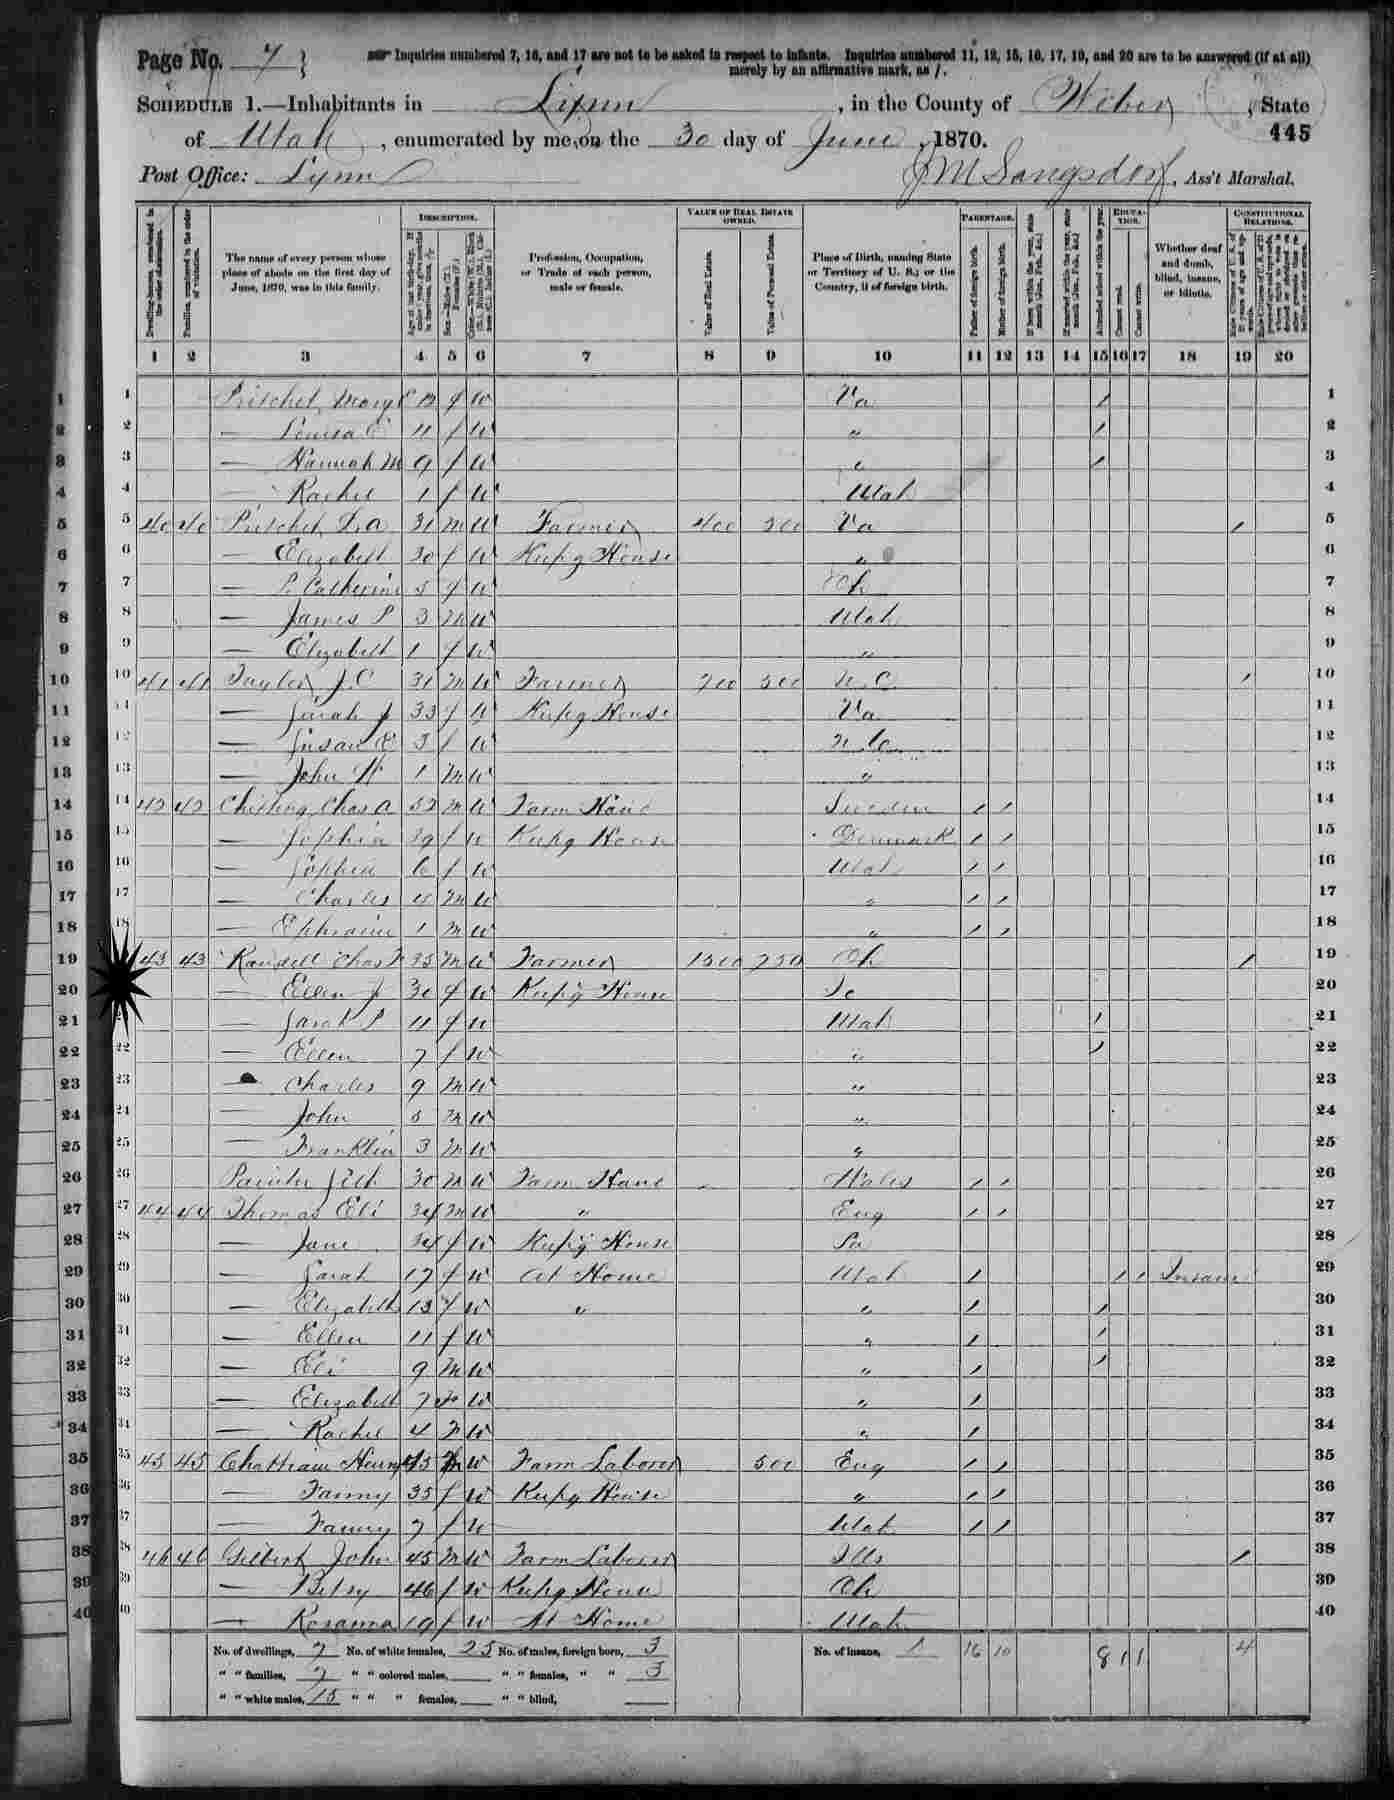 Page No. 7 } Inquiries numbered 7, 16, and 17 are not to be asked in respect to infants. Inquiries numbered 11, 12, 15, 16, 17, 19, and 20 are to be answered (if at all)
merely by an affirmative mark, as /.
SCHEDULE 1.—Inhabitants in Lynn, in the County of Weber, State
of Utah, enumerated by me on the 30 day of June, 1870. 445
Post Office: Lynn J M Langsdorf, Ass't Marshal.
DESCRIPTION. VALUE OF REAL ESTATE OWNED. PARENTAGE. EDUCATION. CONSTITUTIONAL RELATIONS.
Dwelling-houses, numbered in the order of visitation.
Families, numbered in the order of visitation.
The name of every person whose place of abode on the first day of June, 1870, was in this family.
Profession, Occupation, or Trade of each person, male or female.
Value of Real Estate.
Value of Personal Estate.
Place of Birth, naming State or Territory of U. S.; or the Country, if of foreign birth.
Father of foreign birth.
Mother of foreign birth.
Attended school within the year.
Cannot read.
Cannot write.
Whether deaf and dumb, blind, insane, or idiotic.
1 2 3 4 5 6 7 8 9 10 11 12 13 14 15 16 17 18 19 20
1 Pritchet, Mary 12 f W Va / 1
2 — Louisa E 11 f W " / 2
3 — Hannah M 9 f W " / 3
4 — Rachel 1 f W Utah 4
5 40 40 Pritchet, 31 M W Farmer 400 300 Va / 5
6 — Elizabeth 30 f W Keep'g House " 6
7 — Catherine 5 f W Oh 7
8 — James P 3 M W Utah 8
9 — Elizabeth 1 f W " 9
10 41 41 Taylor, J. C 31 M W Farmer 300 N. C / 10
11 — Sarah J 33 f W Keep'g House Va 11
12 — Susan E 3 f W N. C. 12
13 — John W 1 M W " 13
14 42 42 Chas A 52 M W Farm Hand Sweden / / 14
15 — Sophia 39 f W Keep'g House Denmark / / 15
16 — Sophia 6 f W Utah / / 16
17 — Charles 4 M W " / / 17
18 — Ephraim 1 M W " / / 18
19 43 43 Randell Chas F 35 M W Farmer 1500 750 Oh / 19
20 — Ellen J 30 f W Keep'g House 20
21 — Sarah P 11 f W Utah / 21
22 — Ellen 7 f W " / 22
23 — Charles 9 M W " 23
24 — John 5 M W " 24
25 — Franklin 3 M W " 25
26 Painter 30 M W Farm Hand Wales / / 26
27 44 44 Thomas Eli 34 M W " Eng / / 27
28 — Jane 34 f W Keep'g House Pa 28
29 — Sarah 17 f W At Home Utah / / / Insane 29
30 — Elizabeth 13 f W " " / / 30
31 — Ellen 11 f W " / / 31
32 — Eli 9 M W " / / 32
33 — Elizabeth 7 W " / 33
34 — Rachel 4 W " / 34
35 45 45 Henry 45 M W Farm Laborer 500 Eng / / 35
36 — Fanny 35 f W Keep'g House " / / 36
37 — Fanny 7 f W Utah / / 37
38 46 46 Gilbert John 45 M W Farm Laborer Ills / 38
39 — Betsy 46 f W Keep'g House Oh 39
40 — Rosanna 19 f W At Home Utah 40
No. of dwellings, 7 No. of white females, 25 No. of males, foreign born, 3 No. of insane, 1 16 10 8 1 1 4
" " families, 7 " " colored males, " " females, " " 3
" " white males, 15 " " " females, " " blind,